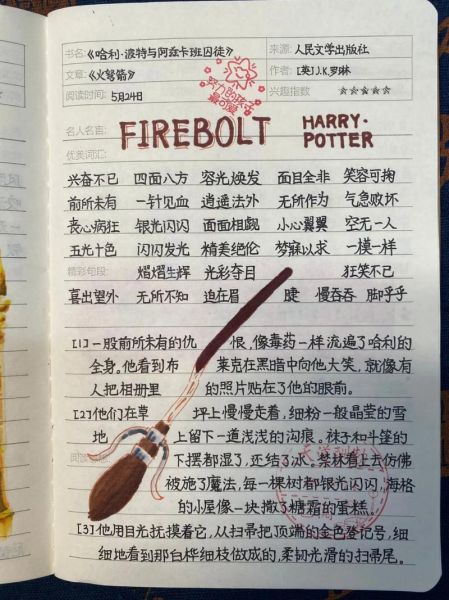 书名:《哈利·波特与阿兹卡班囚徒》 来源: 人民文学出版社
文章:《火弩箭》 作者: [英]J.K.罗琳
阅读时间: 5月24日 兴趣指数 ☆☆☆☆☆
努力的孩子
最可爱
名人名言:
FIREBOLT HARRY·
POTTER
优美词汇:
兴奋不已 四面八方 容光焕发 面目全非 笑容可掬
前所未有 一针见血 逍遥法外 无所作为 气急败坏
丧心病狂 银光闪闪 面面相觑 小心翼翼 空无一人
五光十色 闪闪发光 精美绝伦 梦寐以求 一模一样
精彩句段: 熠熠生辉 光彩夺目 狂笑不已
喜出望外 无所不知 迫在眉 睫 慢吞吞 脚乎乎
[1]一股前所未有的仇 恨,像毒药一样流遍了哈利的
全身。他看到布 莱克在黑暗中向他大笑,就像有
人把相册里 的照片贴在了他的眼前。
[2]他们在草 坪上慢慢走着,细粉一般晶莹的雪
地 上留下一道浅浅的沟痕。袜子和斗篷的
下摆都湿了,还结了冰。禁林看上去仿佛
被施了魔法,每一棵树都银光闪闪,海格
的小屋像一块撒了糖霜的蛋糕。
[3]他用目光抚摸着它,从扫帚把顶端的金色登记号,细
细地看到那白桦细枝做成的,柔韧光滑的扫帚尾。